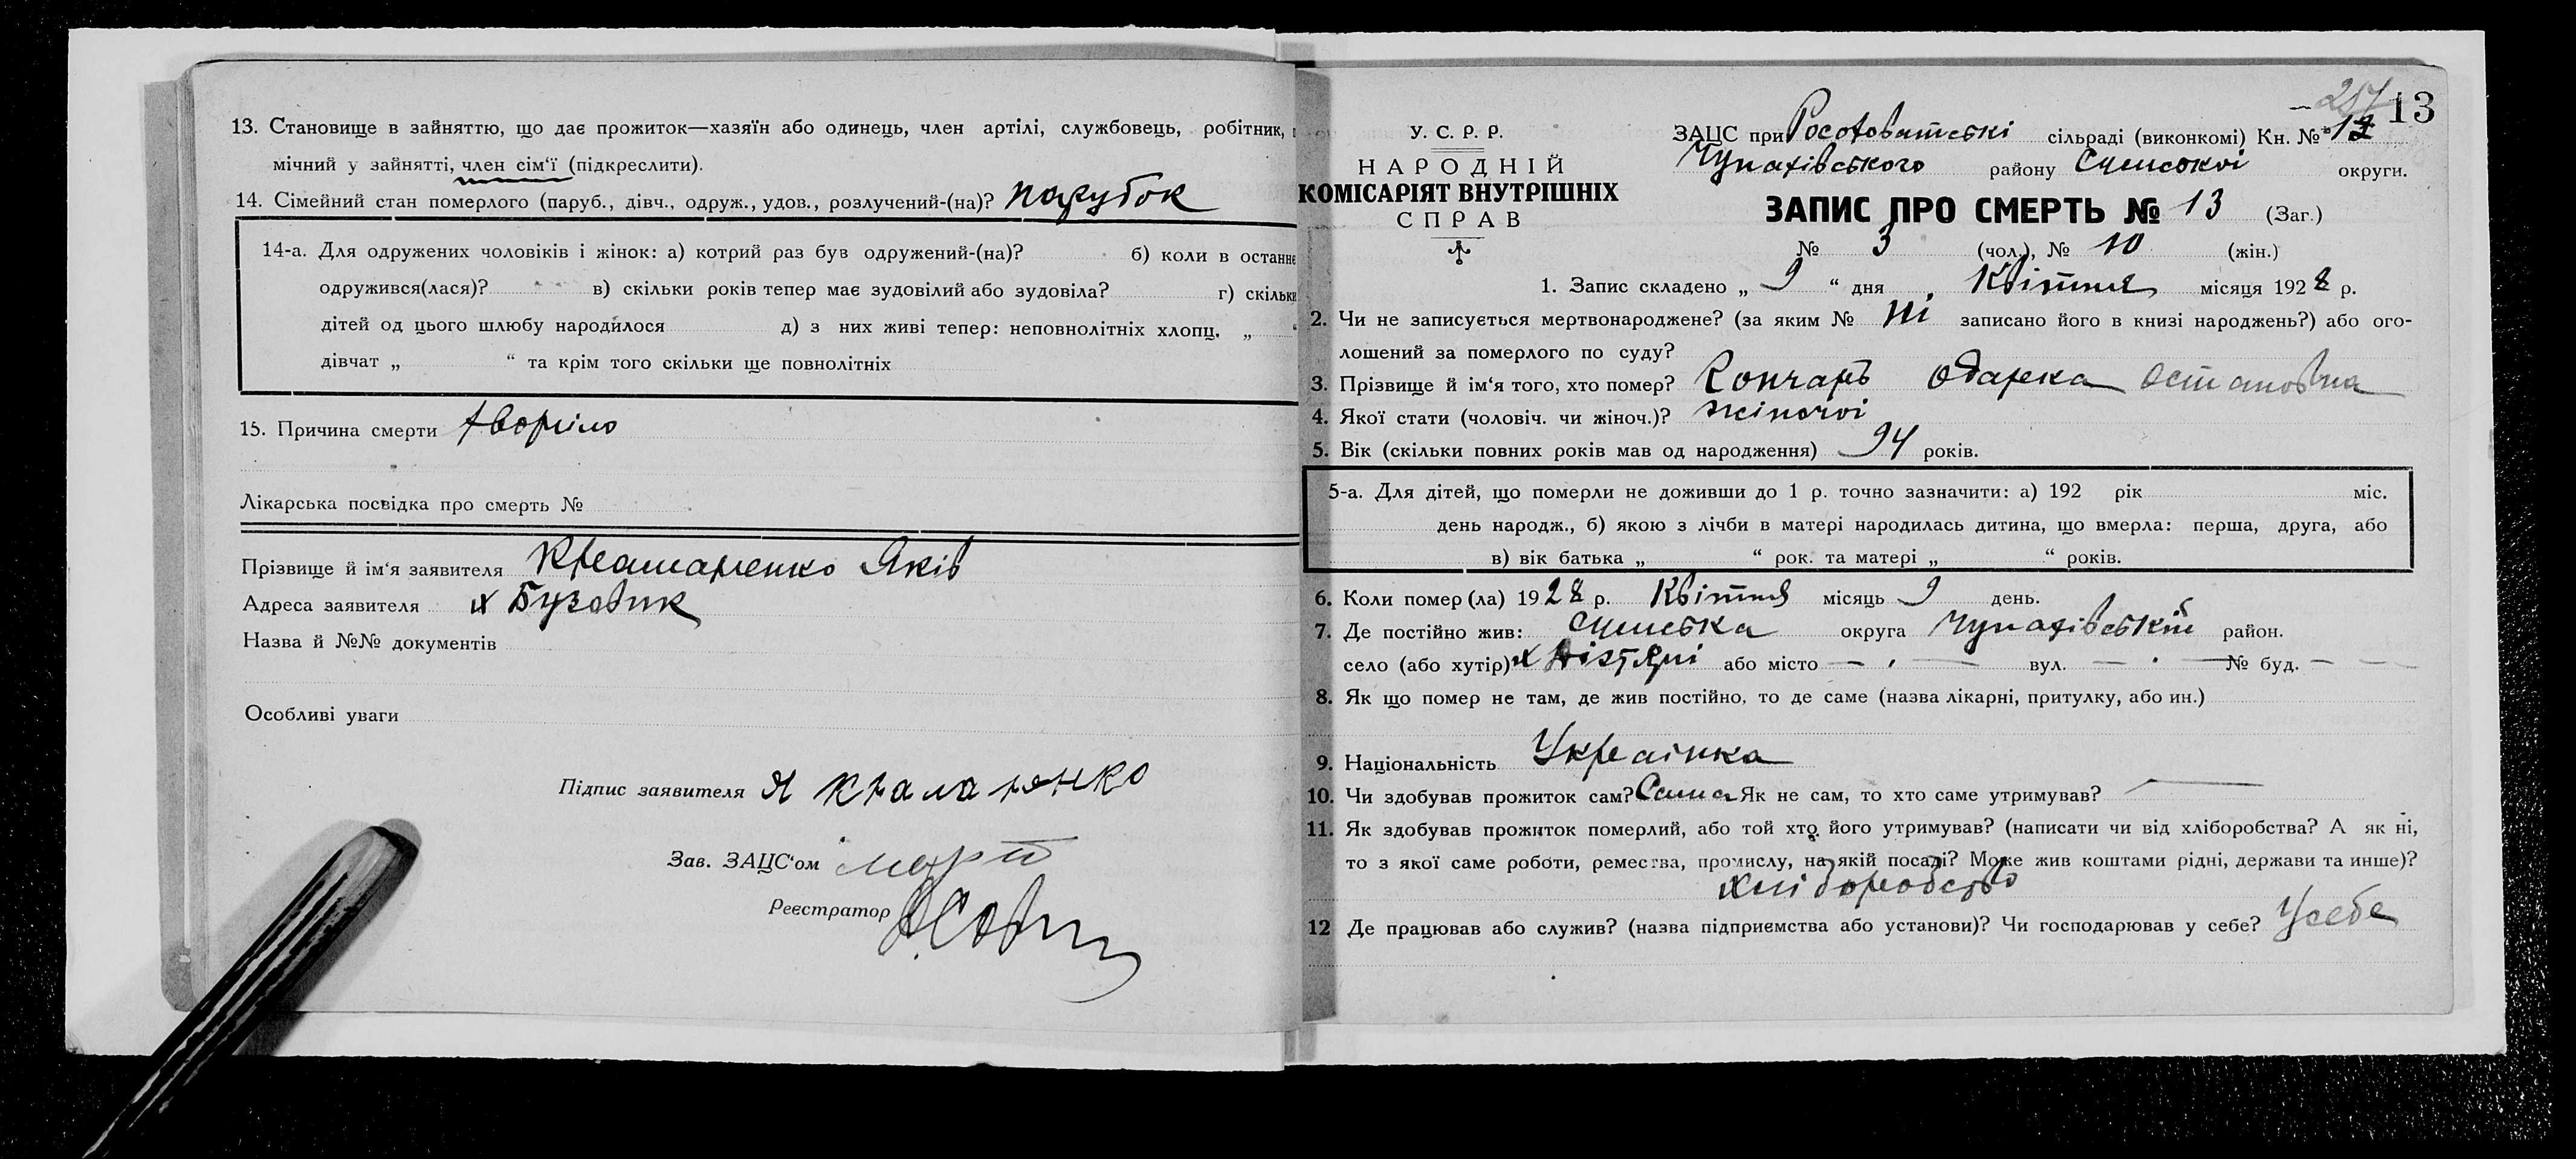 13. Становище в зайняттю, що дає прожиток—хазяїн або одинець, член артілі, службовець, робітник,
мічний у зайнятті, член сім‘ї (підкреслити).
14. Сімейний стан померлого (паруб., дівч., одруж., удов., розлучений-(на)? парубок
14-а. Для одружених чоловіків і жінок: а) котрий раз був одружений-(на)? б) коли в останнє
одружився(лася)? в) скільки років тепер має зудовілий або зудовіла? г) скільки
дітей од цього шлюбу народилося д) з них живі тепер: неповнолітніх хлопц. „ “
дівчат „ “ та крім того скільки ще повнолітніх
15. Причина смерти
Лікарська посвідка про смерть №
Прізвище й ім‘я заявителя Яків
Адреса заявителя х Бузовик
Назва й №№ документів
Особливі уваги
Підпис заявителя Я
Зав. ЗАЦС‘ом
Реєстратор
257 13
У. С. Р. Р.
НАРОДНІЙ
КОМІСАРІЯТ ВНУТРІШНІХ
СПРАВ
ЗАЦС при сільраді (виконкомі) Кн. № 13
Чупахівського району Сумської округи.
ЗАПИС ПРО СМЕРТЬ № 13 (Заг.)
№ 3 (чол.), № 10 (жін.)
1. Запис складено „ 9 “ дня Квітня місяця 1928 р.
2. Чи не записується мертвонароджене? (за яким № Ні записано його в книзі народжень?) або ого-
лошений за померлого по суду?
3. Прізвище й ім‘я того, хто помер? Кончарь Одарка Остаповна
4. Якої стати (чоловіч. чи жіноч.)? жіночої
5. Вік (скільки повних років мав од народження) 94 років.
5-а. Для дітей, що померли не доживши до 1 р. точно зазначити: а) 192 рік міс.
день народж., б) якою з лічби в матері народилась дитина, що вмерла: перша, друга, або
в) вік батька „ “ рок. та матері „ “ років.
6. Коли помер (ла) 1928 р. Квітня місяць 9 день.
7. Де постійно жив: Сумська округа Чупахівський район.
село (або хутір) х або місто — . — вул. — . — № буд. — — —
8. Як що помер не там, де жив постійно, то де саме (назва лікарні, притулку, або ин.)
9. Національність Українка
10. Чи здобував прожиток сам? Сама Як не сам, то хто саме утримував? —
11. Як здобував прожиток померлий, або той хто його утримував? (написати чи від хліборобства? А як ні,
то з якої саме роботи, ремества, промислу, на якій посаді? Може жив коштами рідні, держави та инше)?
хліборобство
12 Де працював або служив? (назва підприємства або установи)? Чи господарював у себе? Усебе